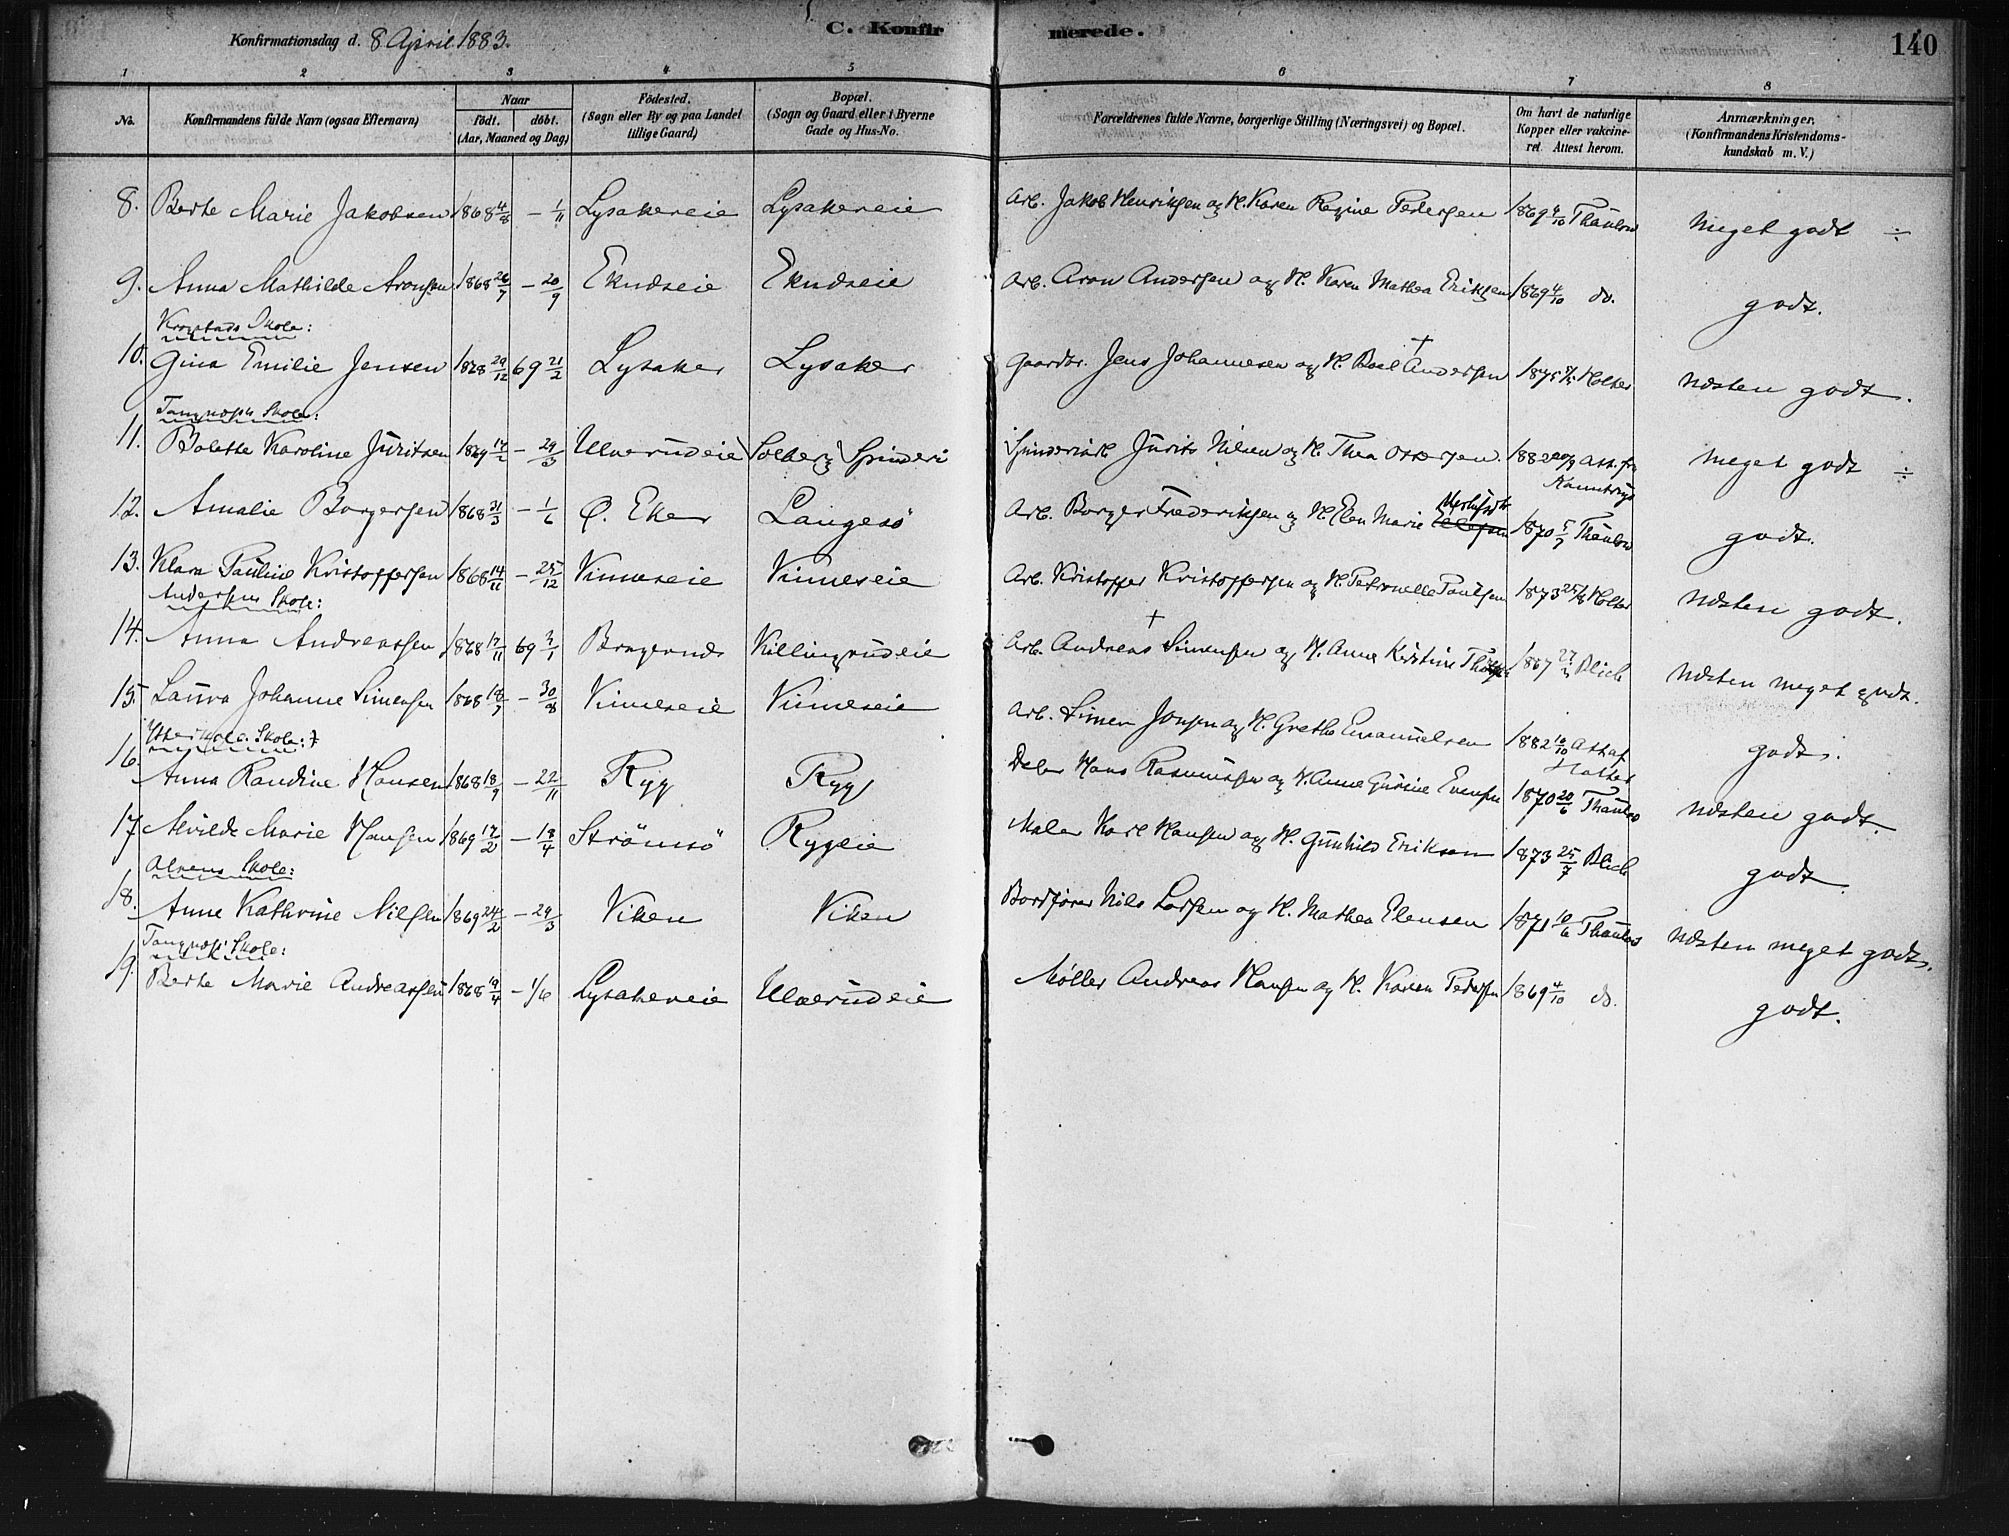 Konfirmationsdag d. 8 April 1883.
C. Konfirmerede.
140
1 2 3 4 5 6 7 8
No. Konfirmandens fulde Navn (ogsaa Efternavn) Naar født. døbt. (Aar, Maaned og Dag) Födested. (Sogn eller By og paa Landet tillige Gaard) Bopæl. (Sogn og Gaard eller i Byerne Gade og Hus-No. Forældrenes fulde Navne, borgerlige Stilling (Næringsvei) og Bopæl. Om havt de naturlige Kopper eller vakcineret. Attest herom. Anmærkninger. (Konfirmandens Kristendomskundskab m. V.)
8. Berte Marie Jakobsen 1868 4/8 – 1/11 Lysakereie Lysakereie Arb. Jakob Henriksen og H. Karen Regine Pedersen 1869 4/10 Thaulow Meget godt ÷
9. Anna Mathilde Aronsen 1868 26/7 – 20/9 Eknæseie Eknæseie Arb. Aron Andersen og H. Karen Mathea Eriksen 1869 4/10 do. godt.
Skole:
10. Gina Emilie Jensen 1868 29/12 69 21/2 Lysaker Lysaker Gaardbr. Jens Johannesen og H. Boel † Andersen 1875 Holter Næsten godt.
Skole:
11. Bolette Karoline Juritsen 1869 – 29/3 Ulverudeie Solberg Spinderi Jurits Nilsen og H. Thea 1882 Att. fra Meget godt ÷
12. Amalie Borgersen 1868 31/3 – 1/6 Ø. Eker Langesö Arb. Borger Frederiksen og H. Elen Marie 1870 5/7 Thaulow godt.
13. Klara Pauline Kristoffersen 1868 14/11 – 25/12 Vinneseie Vinneseie Arb. Kristoffer Kristoffersen og H. Petronelle Paulsen 1873 Holter Næsten godt.
Andersens Skole:
14. Anna Andreassen 1868 17/11 69 3/1 Bragernæs Killingrudeie Arb. Andreas † Simensen og H. Anne Kristine 1867 Blich Næsten meget godt.
15. Laura Johanne Simensen 1868 18/7 – 30/8 Vinneseie Vinneseie Arb. Simen Jonsen og H. Grethe Emanuelsen 1882 10/10 Att af Holter godt.
Skole:
16. Anna Randine Hansen 1868 18/9 – 22/11 Ryg Ryg Hans Rasmussen og H. Anne Gurine Evensen 1870 20/6 Thaulow Næsten godt.
17. Alvilde Marie Hansen 1869 17/2 – 18/4 Strömsö Rygeie Maler Karl Hansen og H. Gunhild Eriksen 1873 25/7 Blich godt
Skole:
18. Anne Kathrine Nilsen 1869 24/2 – 29/3 Viken Viken Bordfører Nils Larsen og H. Mathea Elensen 1871 10/6 Thaulow Næsten meget godt.
Skole:
19. Berte Marie Andreassen 1868 19/4 – 1/6 Lysakereie Ulverudeie Møller Andreas Hansen og H. Karen Pedersen 1869 4/10 do. godt.